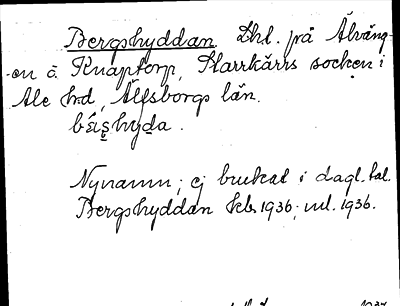 Bergshyddan. Lhl. på Älväng-
en å Knaptorp, Starrkärrs socken i
Ale hd, Älfsborgs län.
Nynamn; ej brukat i dagl. tal.
Bergshyddan Feb. 1936; upl. 1936.